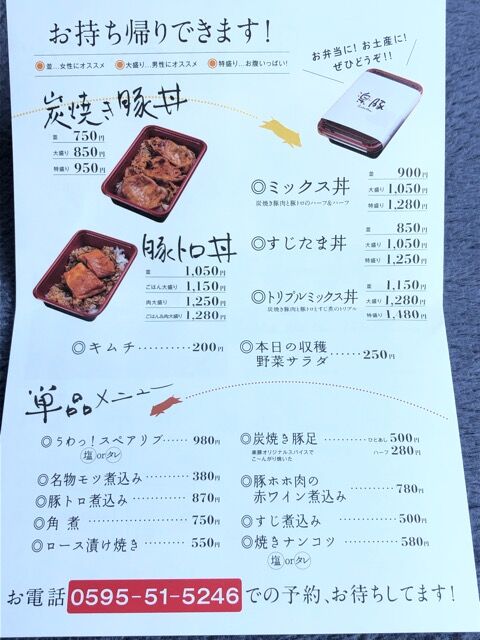 お持ち帰りできます!
並…女性にオススメ
大盛り…男性にオススメ
特盛り…お腹いっぱい!
お弁当に!お土産に!
ぜひどうぞ!!
楽豚
炭焼き豚丼
並 750円
大盛り 850円
特盛り 950円
豚トロ丼
並 1,050円
ごはん大盛り 1,150円
肉大盛り 1,250円
ごはん&肉大盛り 1,280円
◎ミックス丼
炭焼き豚肉と豚トロのハーフ&ハーフ
並 900円
大盛り 1,050円
特盛り 1,280円
◎すじたま丼
並 850円
大盛り 1,050円
特盛り 1,250円
◎トリプルミックス丼
炭焼き豚肉と豚トロとすじ煮のトリプル
並 1,150円
大盛り 1,280円
特盛り 1,480円
◎キムチ………200円
◎本日の収穫
野菜サラダ……250円
単品メニュー
◎うわっ!スペアリブ……980円
塩orタレ
◎名物モツ煮込み……380円
◎豚トロ煮込み……870円
◎角煮……750円
◎ロース漬け焼き……550円
◎炭焼き豚足……ひとあし500円
楽豚オリジナルスパイスで
こ〜んがり焼いた
ハーフ 280円
◎豚ホホ肉の
赤ワイン煮込み……780円
◎すじ煮込み……500円
◎焼きナンコツ……580円
塩orタレ
お電話 0595-51-5246 での予約、お待ちしてます!